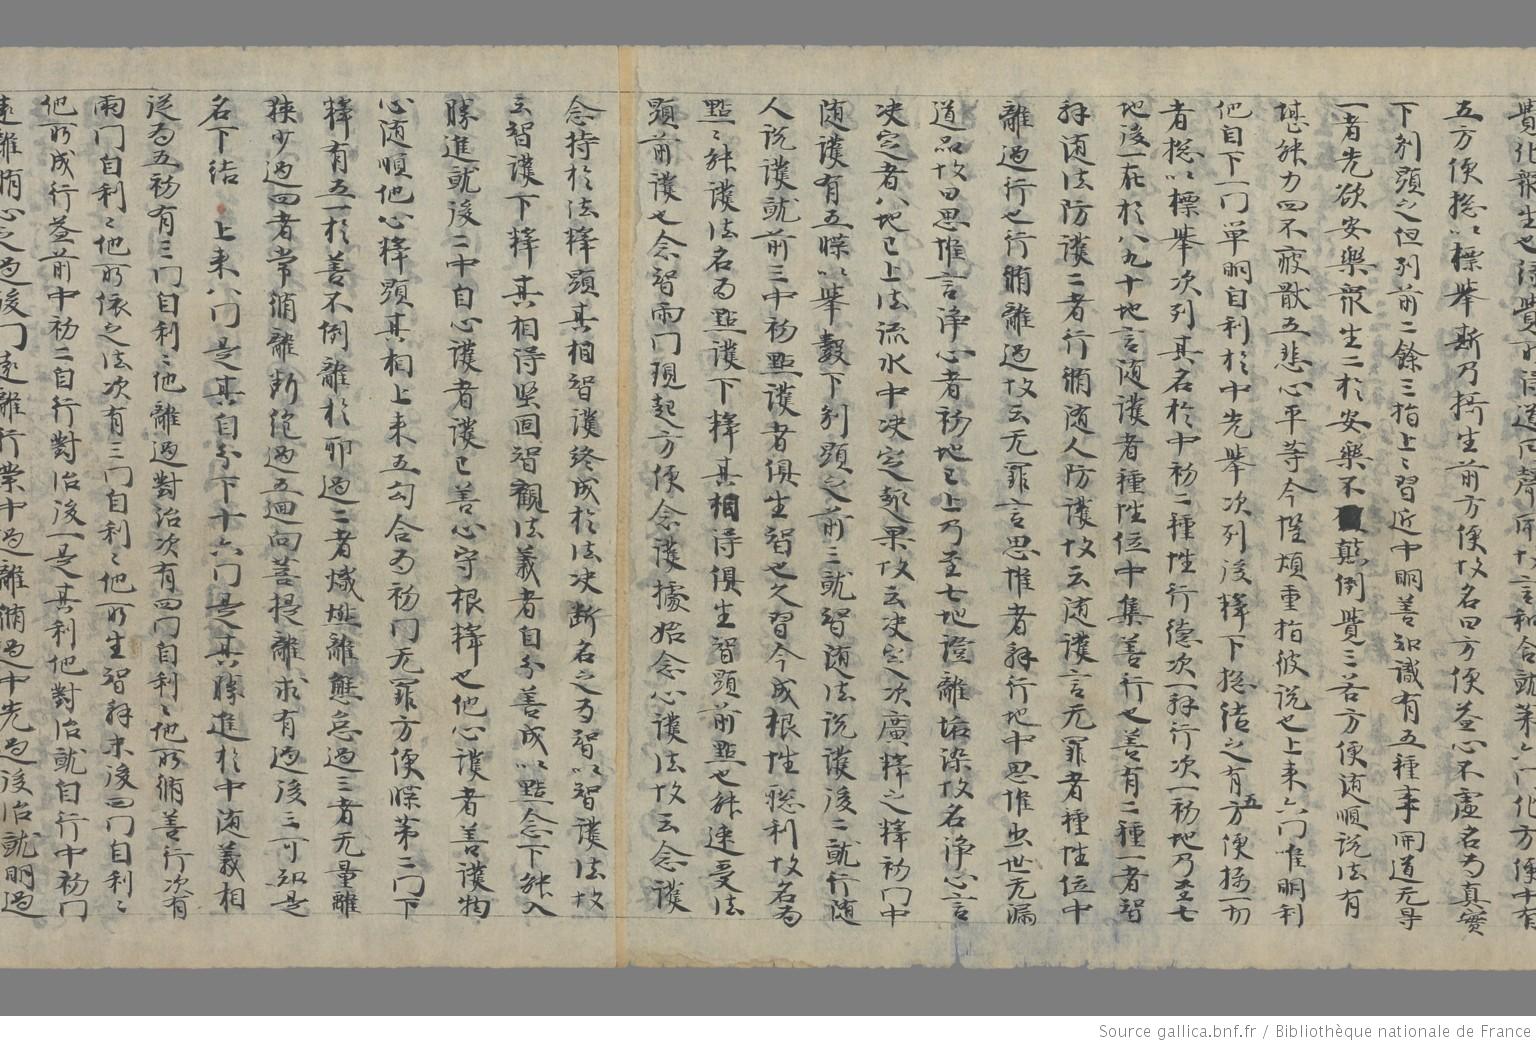 五方便捴以標舉斯乃擬生前方便故名曰方便答心不虛名為真實
下別顯之但列前二餘三指上〻習近中明善知識有五種事開道无导
一者先欲安樂衆生二於安樂不顛倒覺三若方便随順說法有
堪能力四不疲猒五悲心平等今惟煩重指彼說也上来六門惟明利
他自下一門單明自利於中先舉次列後釋下捴結之有五方便攝一切
者捴以標舉次列其名於中初二種性行德次一解行次一初地乃至七
地後一在於八九十地言随護者種性位中集善行也善有二種一者智
解随法防護二者行脩随人防護故云随護言无罪者種性位中
離過行也行脩離過故云无罪言思惟者解行地中思惟出世无漏
道品故曰思惟言淨心者初地已上乃至七地證離垢染故名淨心言
决定者八地已上法流水中决定趣果故云决定次廣釋之釋初門中
随護有五𮕵以舉數下別顯之前三就智随法說護後二就行随
人說護就前三中初點護者俱生智也久習今成根性聡利故名為
點〻能護法名為點護下釋其相得俱生智顯前點也能速受法
顯前護也念智兩門現起方便念護據始念心護法故云念護
念持於法釋顯其相智護終成於法决斷名之為智以智護法故
云智護下釋其相得堅固智觀法義者自分善成以點念下能入
勝進就後二中自心護者護已善心守根釋也他心護者善護物
心随順他心釋顯其相上来五句合為初門无罪方便𮕵第二門下
釋有五一於善不倒離於邪過二者熾燃離懈怠過三者无量離
狹少過四者常脩離斷絕過五迴向菩提離求有過後三可知是
名下結上来八門是其自分下十六門是其勝進於中随義相
從為五初有三門自利〻他離過對治次有四門自利〻他所脩善行次有
兩門自利〻他所依之法次有三門自利〻他所生智解末後四門自利〻
他所成行益前中初二自行對治後一是其利他對治就自行中初門
遠離脩心之過後門遠離行業中過離脩過中先過後治就明過